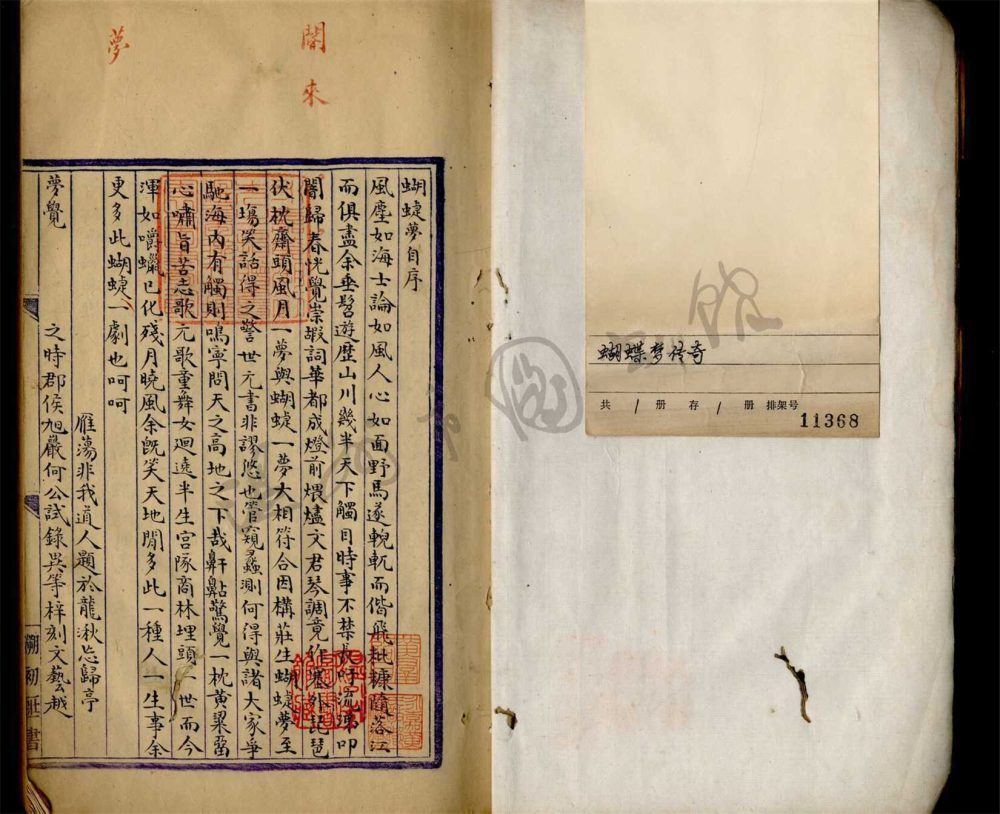 蝴蝶夢自序
風塵如海士論如風人心如面野馬遂輗軏而偕飛秕糠隨落江
而俱盡余垂髫遊歷山川幾半天下觸目時事不禁長吁流涕叩
闇歸春恍覺崇嘏詞華都成燈前煨燼文君琴調竟作塞外琵琶
伏枕齋頭風月一夢與蝴蝶一夢大相符合因構莊生蝴蝶夢至
一塲笑話得之警世元書非謬悠也管窺蠡測何得與諸大家爭
馳海内有觸則鳴寧問天之高地之下哉鼾鼾驚覺一枕黄粱
心嘯旨苦志歌元歌童舞女迴遶半生宮商林埋頭一世而今
渾如嚼蠟已化殘月曉風余旣笑天地間多此一種人一生事余
更多此蝴蝶一劇也呵呵
雁蕩非我道人題於龍湫忘歸亭
之時郡侯旭巖何公試錄異等梓刻文藝越
夢覺
闇來
夢
蝴蝶梦传奇
共 1 册 存 1 册 排架号
11368